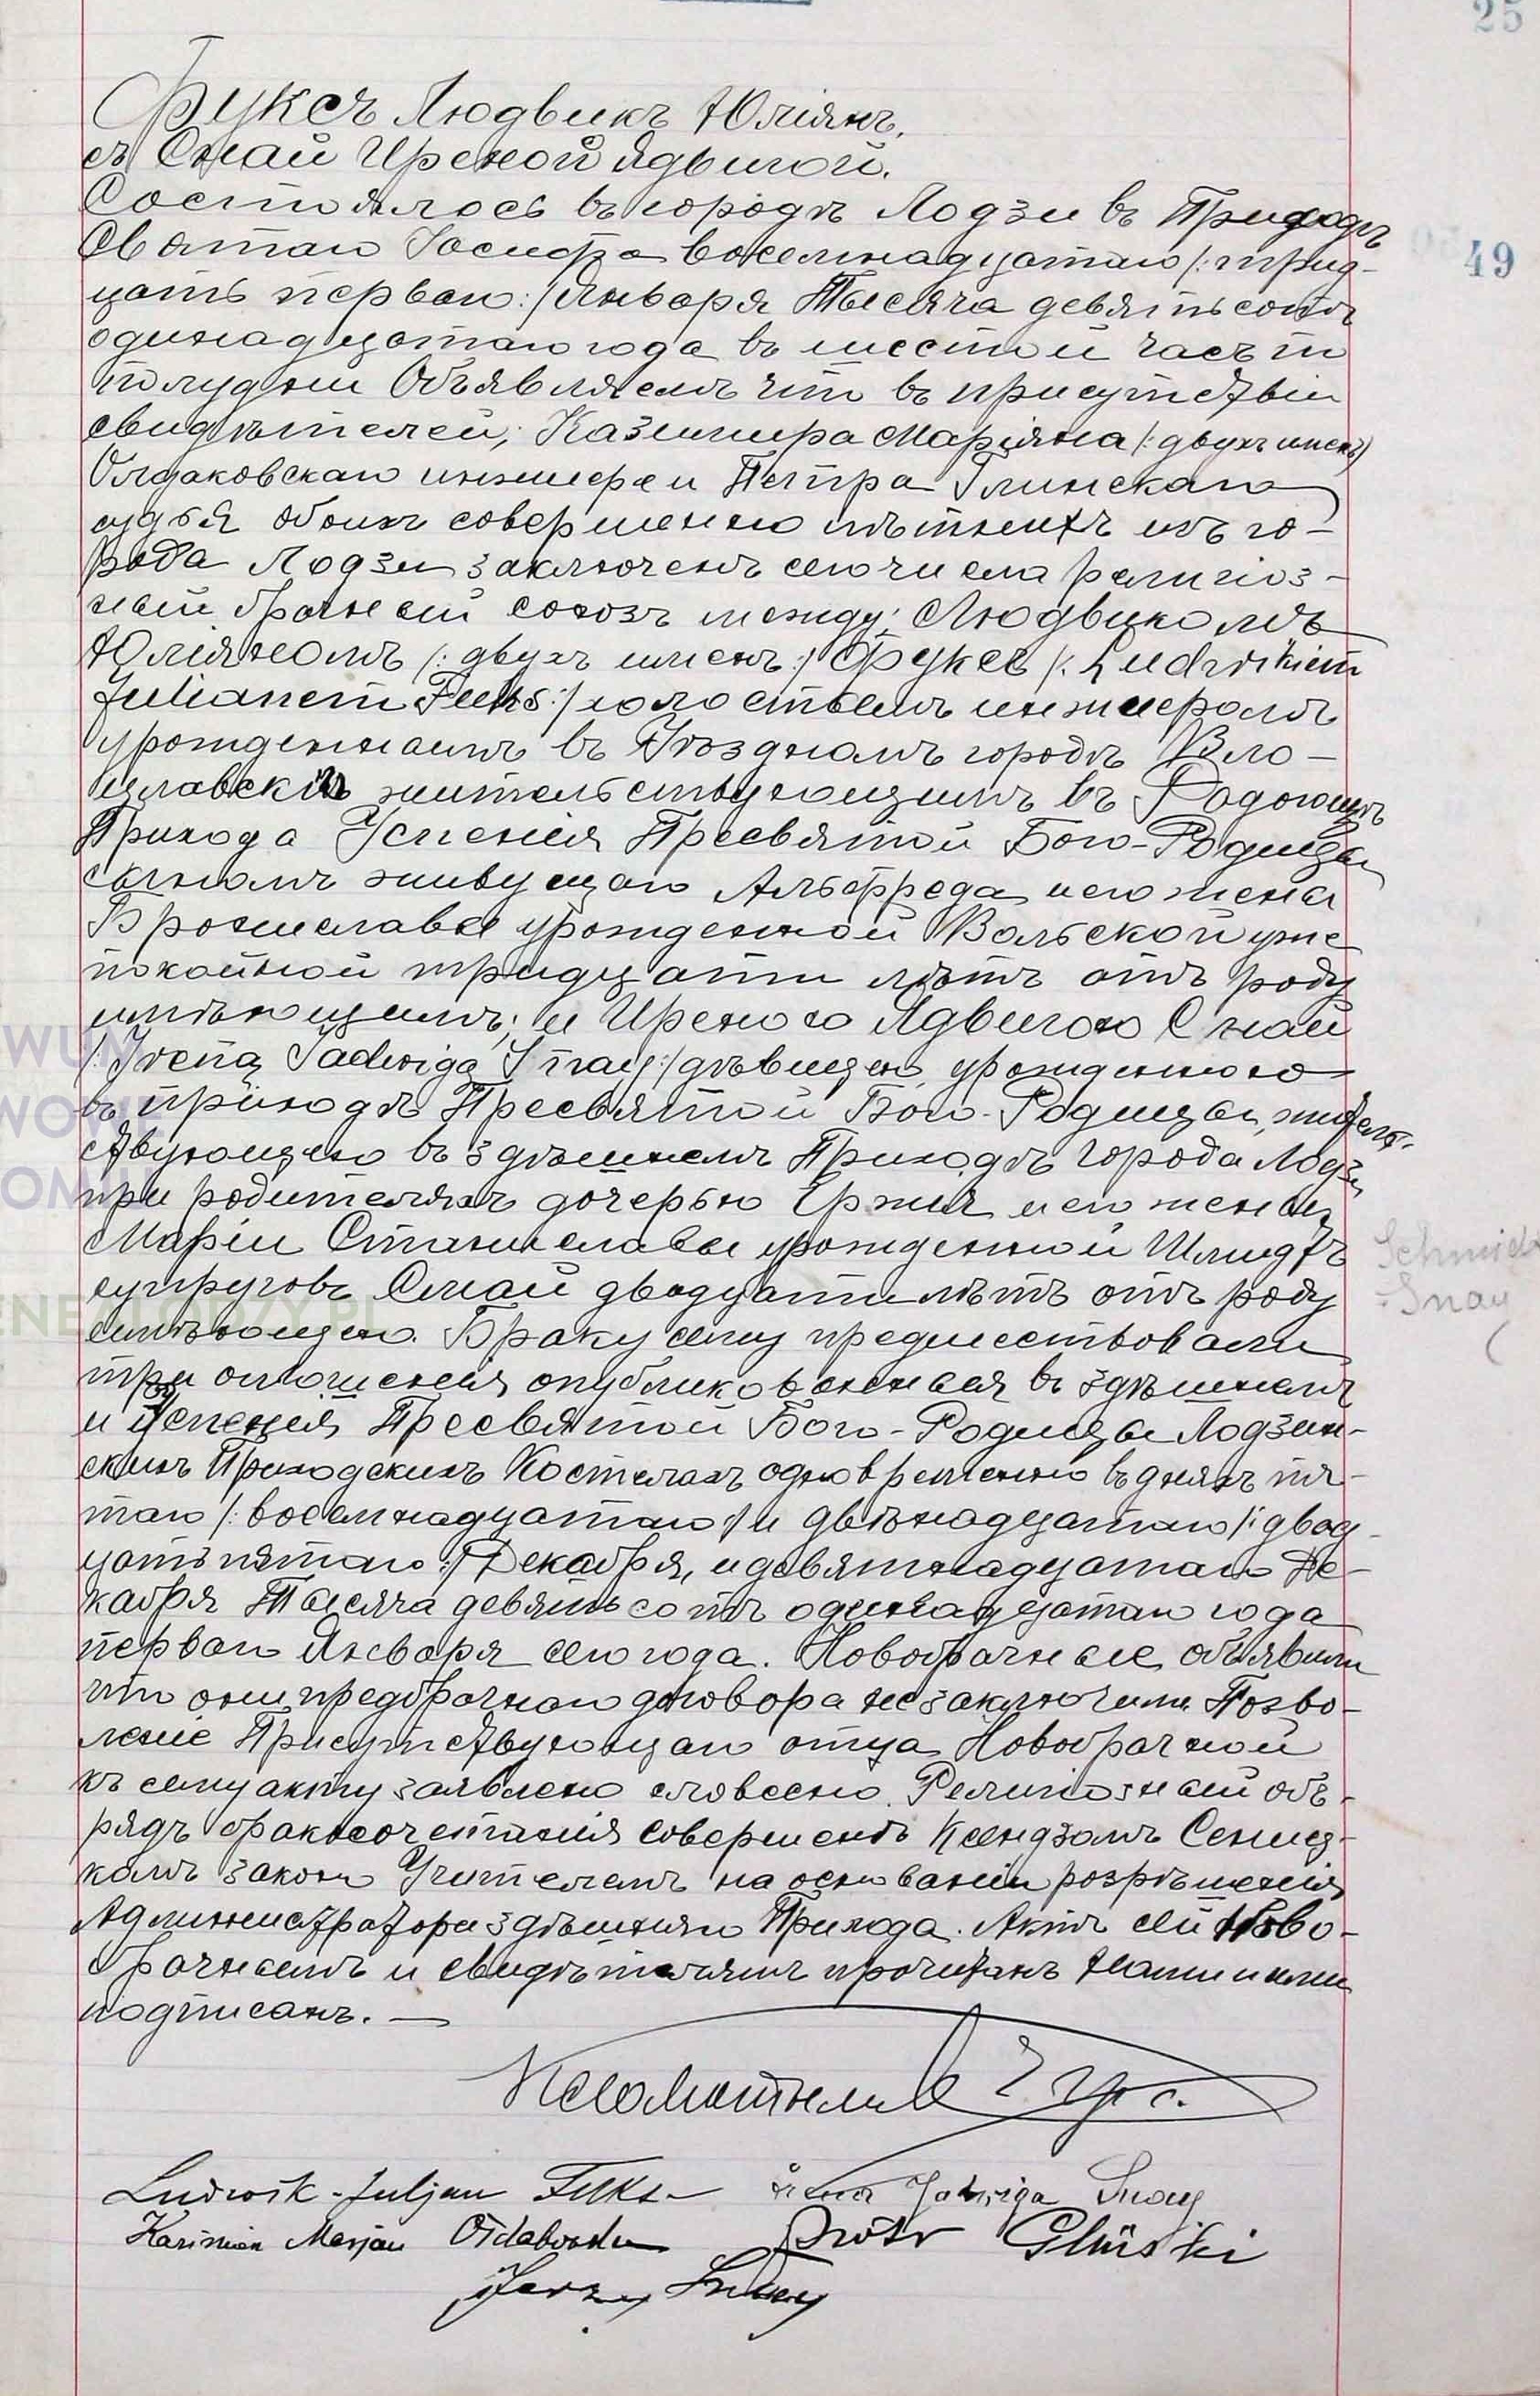 25
Фуксъ Людвикъ Юліянъ,
съ Снай Иреной Ядвигой.
Состоялось въ городѣ Лодзи въ Приходѣ
Святаго Іосифа восемнадцатаго /: трид-
цать перваго :/ Января Тысяча девятьсотъ
одинадцатаго года въ шестой часъ по
полудни Объявляемъ что въ присутствіи
свидѣтелей; Казимира Маріяна /: двухъ именъ)
Олдаковскаго инженера и Петра Глинскаго
судья обоихъ совершенно лѣтнихъ изъ го-
рода Лодзи заключенъ сего числа религіоз-
ный брачный союзъ между: Людвикомъ
Юліяномъ /: двухъ именъ :/ Фуксъ /: Ludwikiem
Julianem Fuks :/ холостымъ инженеромъ
урожденнымъ въ Уѣздномъ городѣ Вло-
цлавскѣ жительствующимъ въ
Прихода Успенія Пресвятой Бого-Родицы
сыномъ живущаго Альфреда и его жены
Брониславы урожденной Вольской уже
покойной тридцати лѣтъ отъ роду
имѣющимъ; и Иреною Ядвигою Снай
/: Irena Jadwiga Snay :/ дѣвицею, урожденною
въ приходѣ Пресвятой Бого-Родицы, житель-
ствующею въ здѣшнемъ Приходѣ города Лодзи
при родителяхъ дочерью Ержія и его жены
Маріи Станиславы урожденной Шмидтъ
супруговъ Снай двадцати лѣтъ отъ роду
имѣющею. Браку сему предшествовали
три оглошенія опубликованныя въ здѣшнемъ
и Успенія Пресвятой Бого-Родицы Лодзин-
скихъ Приходскихъ Костелахъ одновременно въ дняхъ пя-
таго /: восемнадцатаго :/ и двѣнадцатаго /: двад-
цать пятаго :/ Декабря, и девятнадцатаго Де-
кабря Тысяча девятьсотъ одинадцатаго года
перваго Января сего года. Новобрачные объявили
что они предбрачнаго договора не заключили Позво-
леніе Присутствующаго отца Новобрачной
къ сему акту заявлено словесно. Религіозный объ-
рядъ бракосочетанія совершенъ Ксендзомъ
закона Учителемъ на основаніи розрѣшенія
Администратора здѣшняго Прихода. Актъ сей Ново-
брачнымъ и свидѣтелямъ прочитанъ Нами и ими
подписанъ. —
Ludwik-Juljan Fuks Irena Jadwiga Snay
Kazimierz Marjan Ołdakowski Piotr Gliński
Jerzy Snay
49
Schmidt
-Snay